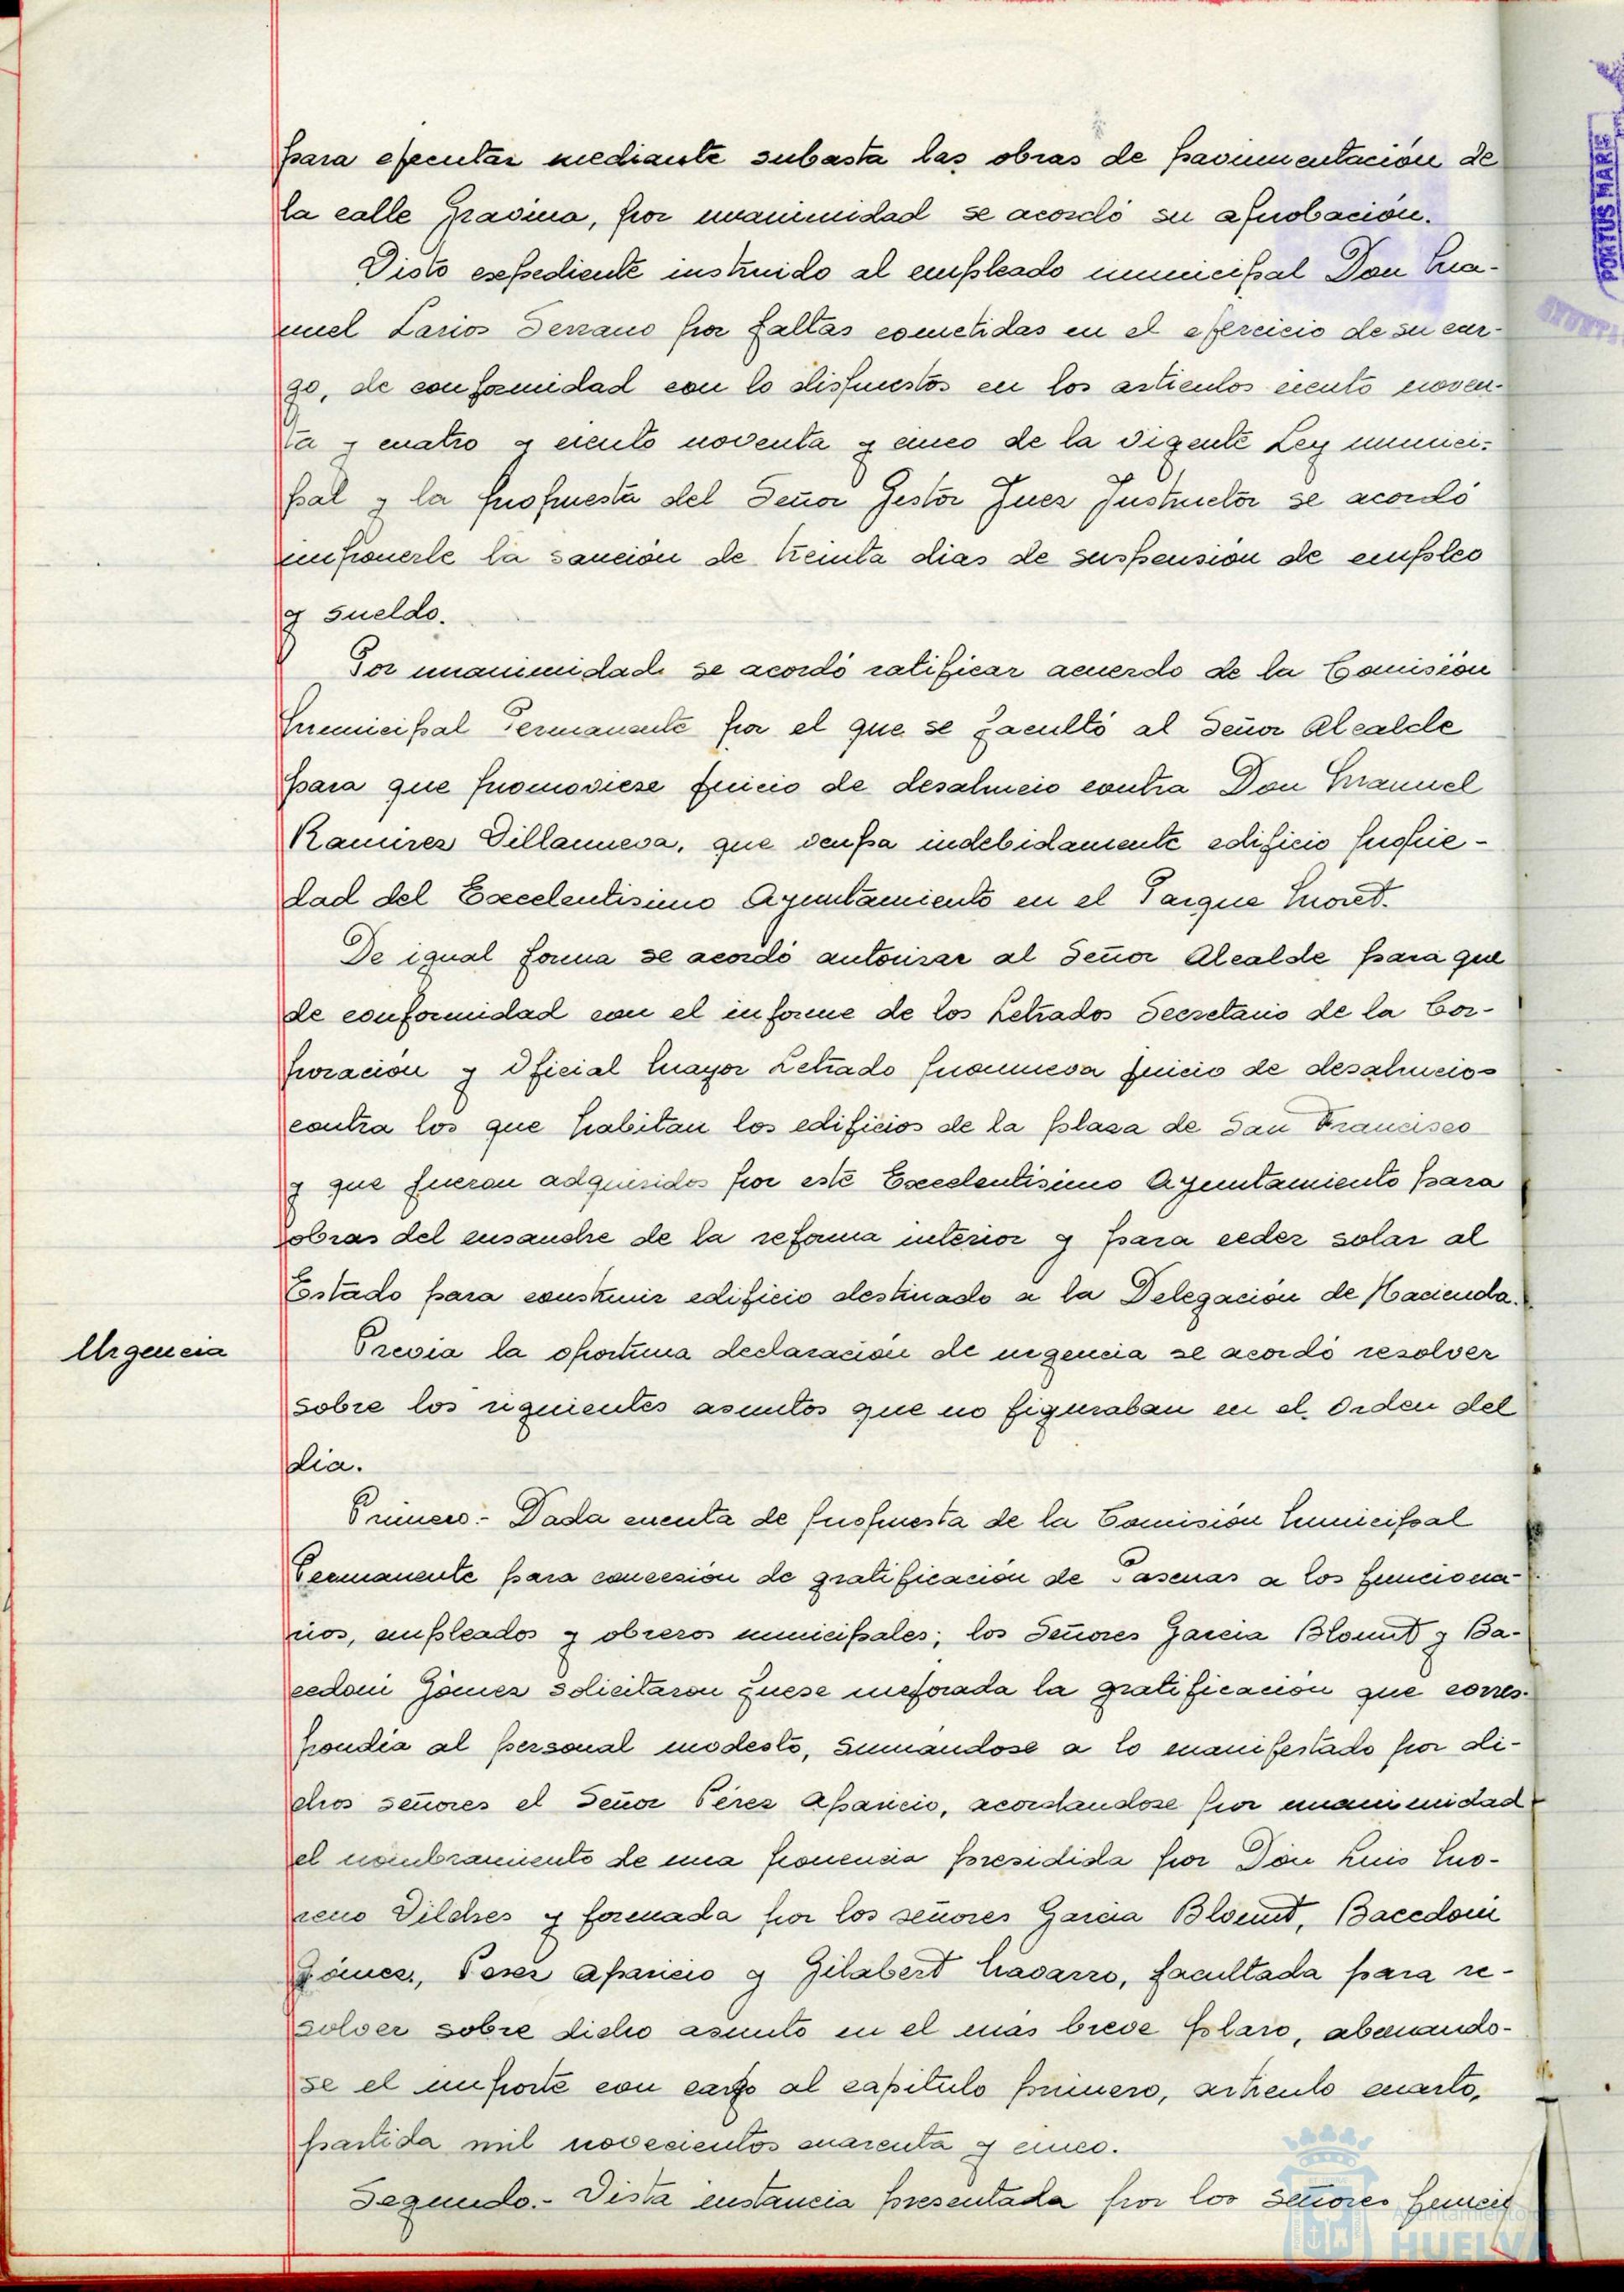 para ejecutar mediante subasta las obras de pavimentación de
la calle Gravina, por unanimidad se acordó su aprobación.
Visto expediente instruido al empleado municipal Don Ma-
nuel Larios Serrano por faltas cometidas en el ejercicio de su car-
go, de conformidad con lo dispuestos en los artículos ciento noven-
ta y cuatro y ciento noventa y cinco de la vigente Ley munici-
pal y la propuesta del Señor Gestor Juez Instructor se acordó
imponerle la sanción de treinta dias de suspensión de empleo
y sueldo.
Por unanimidad se acordó ratificar acuerdo de la Comisión
Municipal Permanente por el que se facultó al Señor Alcalde
para que promoviese juicio de desahucio contra Don Manuel
Ramirez Villanueva, que ocupa indebidamente edificio propie-
dad del Excelentisimo Ayuntamiento en el Parque Moret.
De igual forma se acordó autorizar al Señor Alcalde para que
de conformidad con el informe de los Letrados Secretario de la Cor-
poración y Oficial Mayor Letrado promueva juicio de desahucio
contra los que habitan los edificios de la plaza de San Francisco
y que fueron adquiridos por este Excelentisimo Ayuntamiento para
obras del ensanche de la reforma interior y para ceder solar al
Estado para construir edificio destinado a la Delegación de Hacienda.
Urgencia
Previa la oportuna declaración de urgencia se acordó resolver
sobre los siguientes asuntos que no figuraban en el Orden del
dia.
Primero.- Dada cuenta de propuesta de la Comisión Municipal
Permanente para concesión de gratificación de Pascuas a los funciona-
rios, empleados y obreros municipales; los Señores Garcia Blount y Ba-
cedoni Gómez solicitaron fuese mejorada la gratificación que corres-
pondia al personal modesto, sumandose a lo manifestado por di-
chos señores el Señor Pérez Aparicio, acordandose por unanimidad
el nombramiento de una ponencia presidida por Don Luis Mo-
reno Vilches y formada por los señores Garcia Blount, Bacedoni
Gómez, Perez Aparicio y Gilabert Navarro, facultada para re-
solver sobre dicho asunto en el más breve plazo, abonando-
se el importe con cargo al capítulo primero, artículo cuarto,
partida mil novecientos cuarenta y cinco.
Segundo.- Vista instancia presentada por los Señores
PORTUS MARIS
Ayuntamiento de
HUELVA